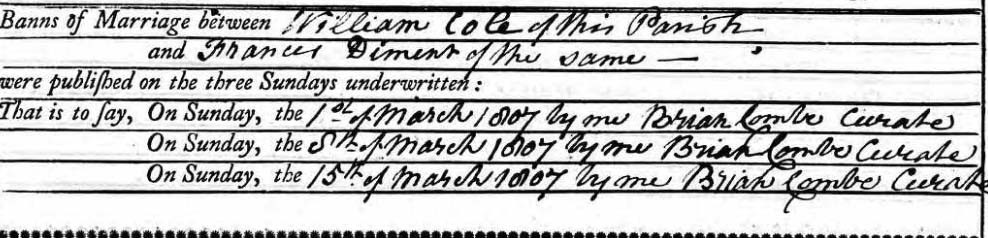 Banns of Marriage between William Cole of this Parish
and Frances Diment of the same —
were publiſhed on the three Sundays underwritten:
That is to ſay, On Sunday, the 1st of March 1807 by me Brian Combe Curate
On Sunday, the 8th of March 1807 by me Brian Combe Curate
On Sunday, the 15th of March 1807 by me Brian Combe Curate